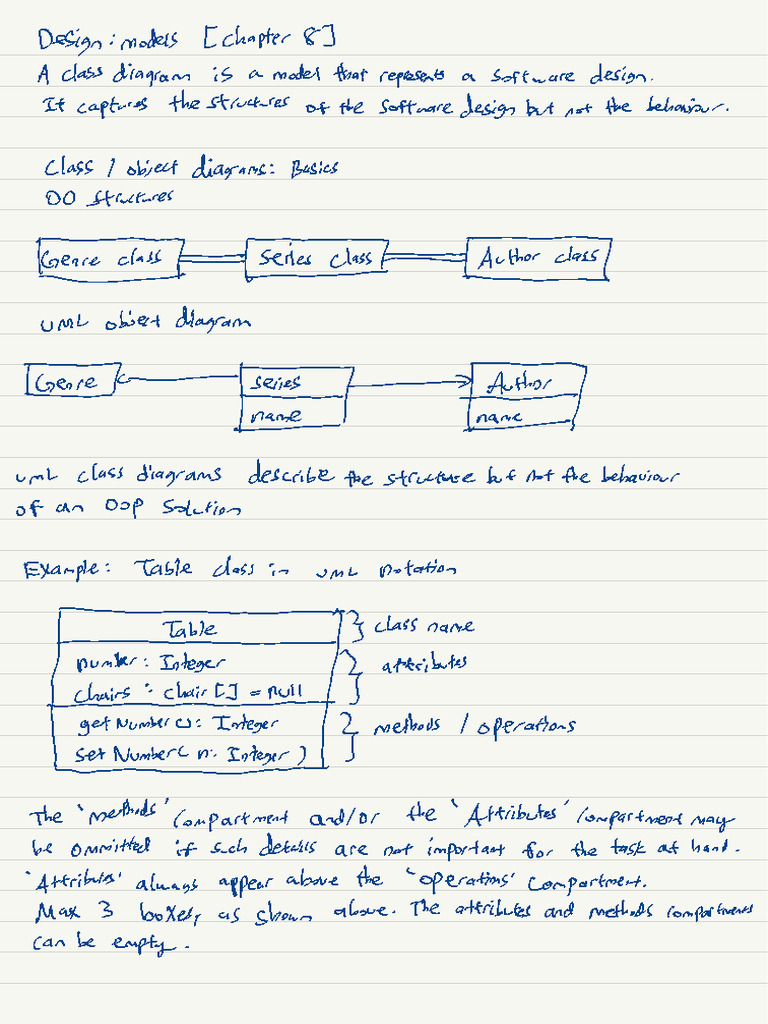 Design: models [Chapter 8]
A class diagram is a model that represents a software design.
It captures the structures of the software design but not the behaviour.
Class / object diagrams: Basics
OO structures
Genre class Series class Author class
UML object diagram
Genre Series Author
name name
UML class diagrams describe the structure but not the behaviour
of an OOP solution
Example: Table class in UML notation
Table } class name
number: Integer } attributes
chairs: Chair[] = null
getNumber(): Integer } methods / operations
setNumber(n: Integer)
The 'methods' compartment and/or the 'Attributes' compartment may
be ommitted if such details are not important for the task at hand.
'Attributes' always appear above the 'operations' compartment.
Max 3 boxes, as shown above. The attributes and methods compartments
can be empty.